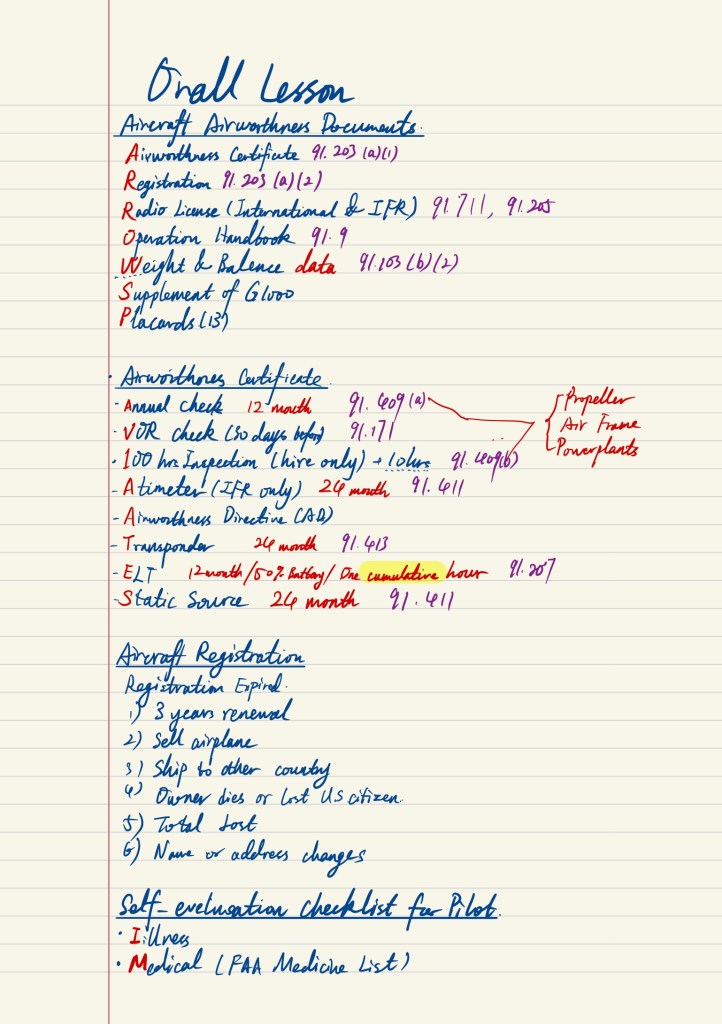 Orall Lesson
Aircraft Airworthness Documents.
Airworthness Certificate 91.203 (a)(1)
Registration 91.203 (a)(2)
Radio License (International & IFR) 91.711, 91.205
Operation Handbook 91.9
Weight & Balence data 91.103 (b)(2)
Supplement of G1000
Placards (13)
· Airworthness Certificate.
- Annual check 12 month 91.409 (a)
Propeller
Air Frame
Powerplants
- VOR check (30 days before) 91.171
· 100 hrs Inspection (hire only) + 10hrs 91.409(b)
- Atimeter (IFR only) 24 month 91.411
- Airworthness Directive (AD)
- Transponder 24 month 91.413
- ELT 12 month / 50% Battery / One cumulative hour 91.207
- Static Source 24 month 91.411
Aircraft Registration
Registration Expired.
1) 3 years renewal
2) Sell airplane
3) Ship to other country
4) Owner dies or lost US citizen
5) Total Lost
6) Name or address changes
Self-evelueation checklist for Pilot.
· Illness
· Medical (FAA Medicine List)